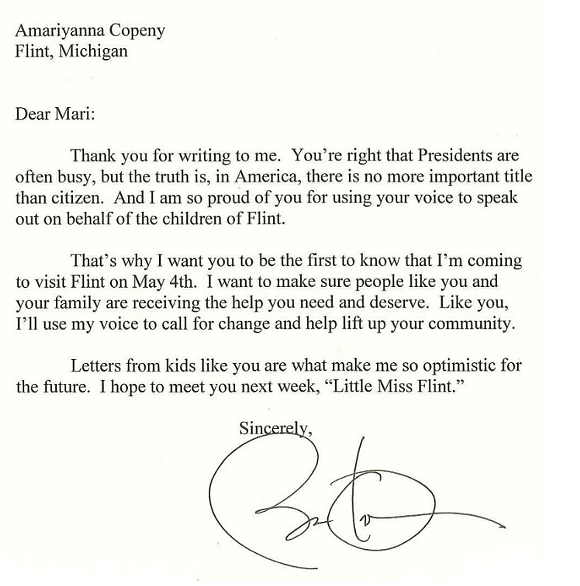 Amariyanna Copeny
Flint, Michigan
Dear Mari:
Thank you for writing to me.  You’re right that Presidents are
often busy, but the truth is, in America, there is no more important title
than citizen.  And I am so proud of you for using your voice to speak
out on behalf of the children of Flint.
That’s why I want you to be the first to know that I’m coming
to visit Flint on May 4th.  I want to make sure people like you and
your family are receiving the help you need and deserve.  Like you,
I’ll use my voice to call for change and help lift up your community.
Letters from kids like you are what make me so optimistic for
the future.  I hope to meet you next week, “Little Miss Flint.”
Sincerely,